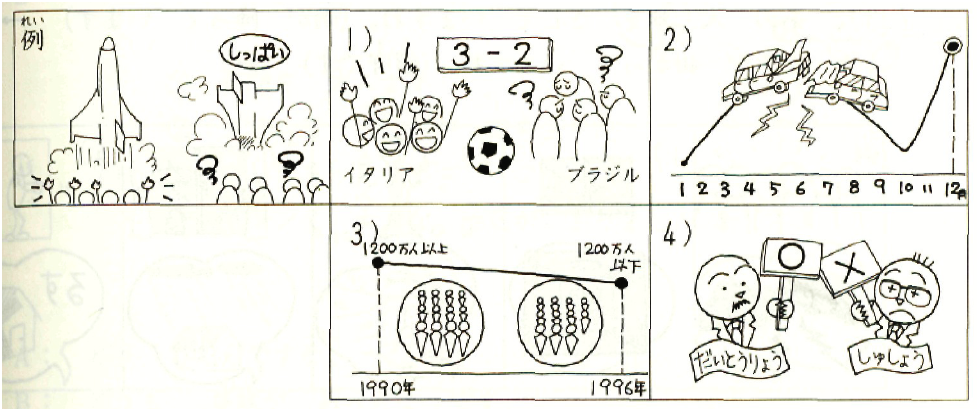 れい
例
しっぱい
1)
3 - 2
イタリア
ブラジル
2)
1 2 3 4 5 6 7 8 9 10 11 12月
3)
1200万人以上
1200万人
以下
1990年
1996年
4)
○
×
だいとうりょう
しゅしょう